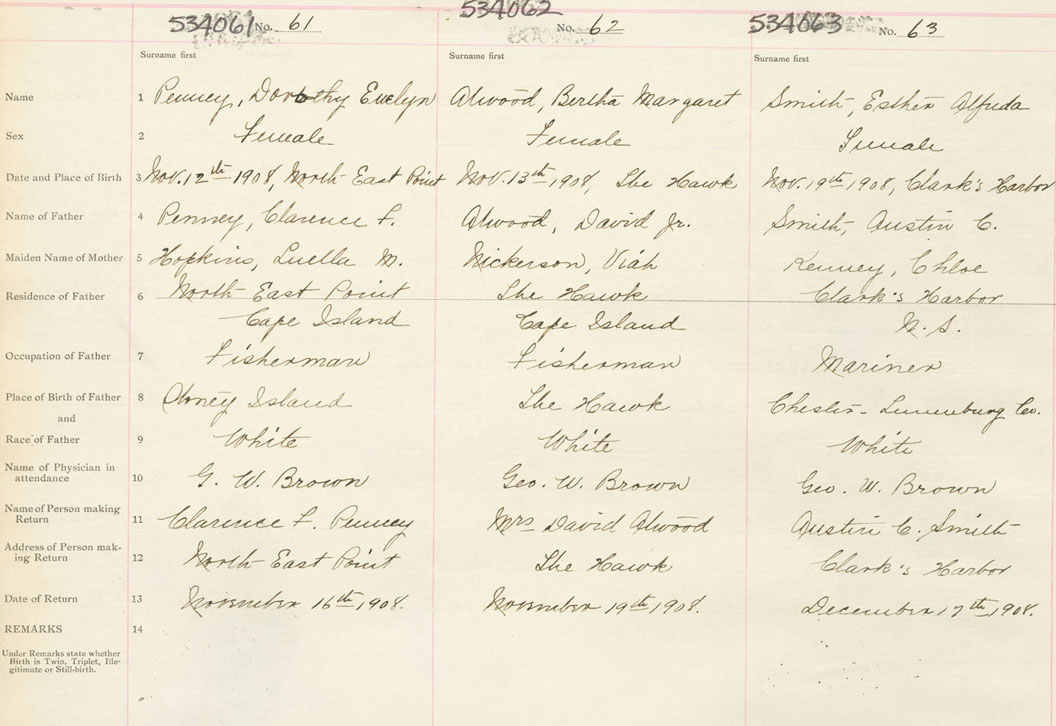 534061 No. 61 534062 No. 62 534063 No. 63
Surname first Surname first Surname first
Name 1 Penney, Dorothy Evelyn Atwood, Bertha Margaret Smith, Esther Alfreda
Sex 2 Female Female Female
Date and Place of Birth 3 Nov. 12th 1908, North East Point Nov. 13th 1908, The Hawk Nov. 19th 1908, Clark's Harbor
Name of Father 4 Penney, Clarence F. Atwood, David Jr. Smith, Austin C.
Maiden Name of Mother 5 Hopkins, Luella M. Nickerson, Viah Kenney, Chloe
Residence of Father 6 North East Point The Hawk Clark's Harbor
Cape Island Cape Island N.S.
Occupation of Father 7 Fisherman Fisherman Mariner
Place of Birth of Father 8 Island The Hawk Chester Lunenburg Co.
and
Race of Father 9 White White White
Name of Physician in
attendance 10 G. W. Brown Geo. W. Brown Geo. W. Brown
Name of Person making
Return 11 Clarence F. Penney Mrs David Atwood Austin C. Smith
Address of Person mak-
ing Return 12 North East Point The Hawk Clark's Harbor
Date of Return 13 November 16th 1908. November 19th 1908. December 17th 1908.
REMARKS 14
Under Remarks state whether
Birth is Twin, Triplet, Ille-
gitimate or Still-birth.